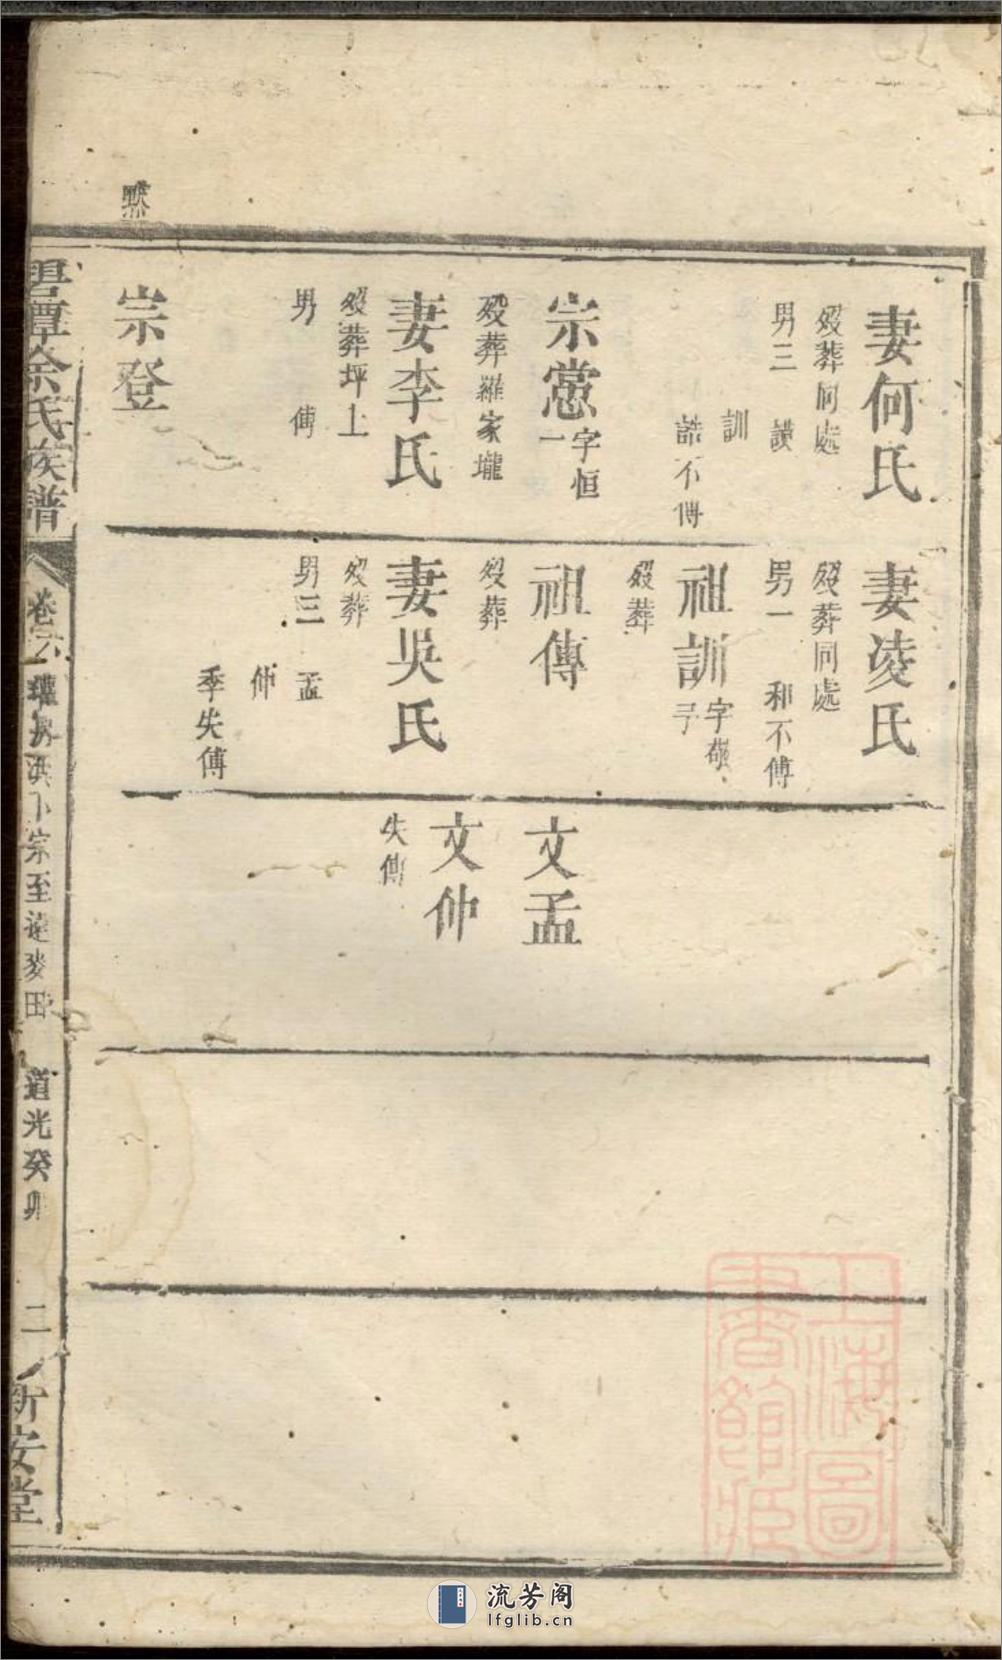 妻何氏
歿葬同處
男三 讃
訓
誥不傳
宗慤
字恒一
歿葬羅家壠
妻李氏
歿葬坪上
男 傳
宗登
妻凌氏
歿葬同處
男一 和不傳
祖訓
歿葬
祖傳
歿葬
妻吳氏
歿葬
男三 孟
仲
季失傳
文孟
文仲
失傳
余氏族譜
卷六
宗至
麥田
道光癸卯
二
新安堂
上海圖書館藏
流芳阁
lfglib.cn